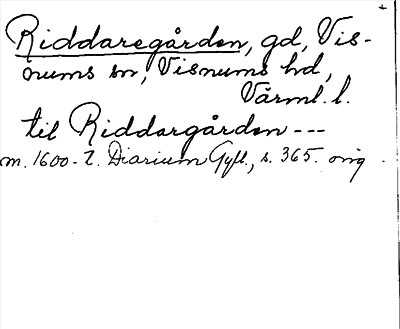 Riddaregården, gd, Vis-
nums sn, Visnums hd,
Värml. l.
til Riddargården ---
m. 1600-t. Diarium Gyll., s. 365. orig.